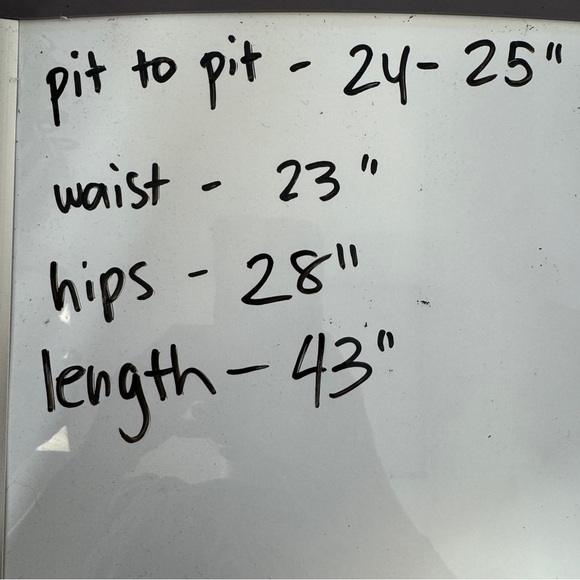 pit to pit - 24- 25"
waist - 23"
hips - 28"
length - 43"